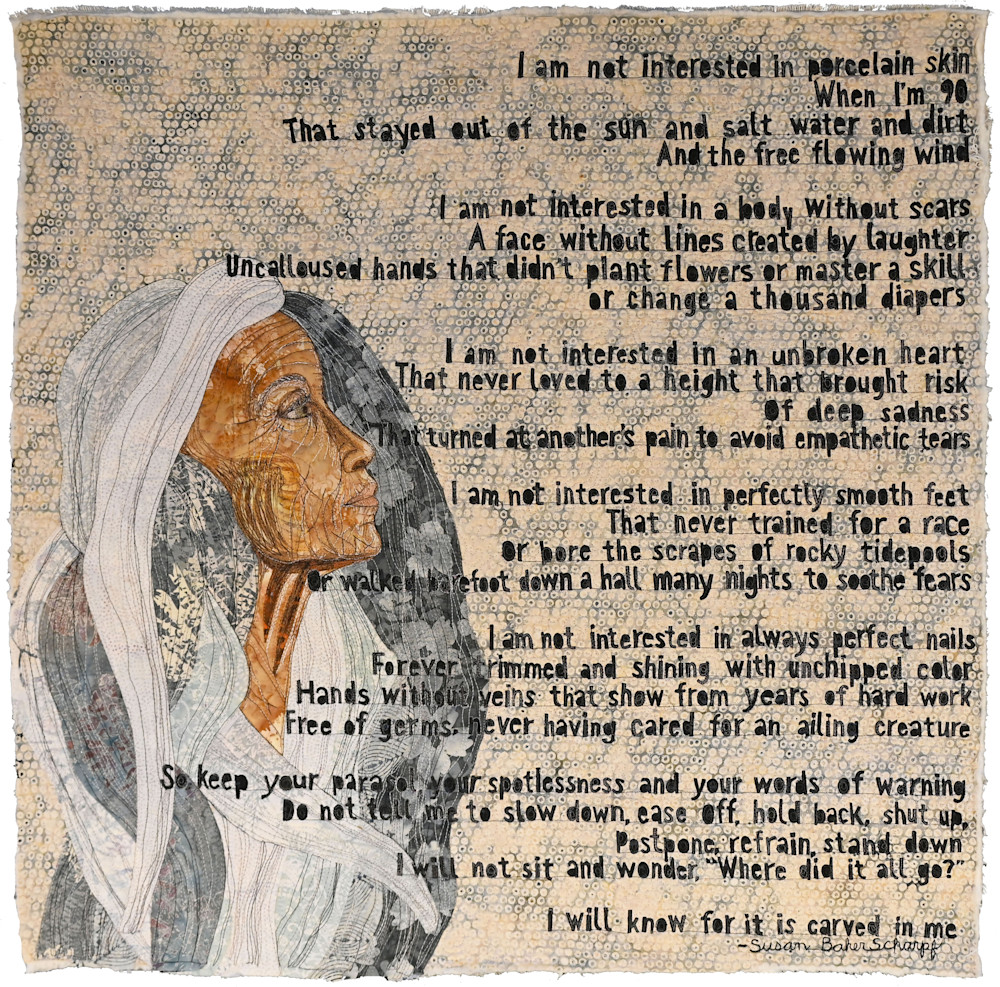 I am not interested in porcelain skin
When I'm 90
That stayed out of the sun and salt water and dirt
And the free flowing wind
I am not interested in a body without scars
A face without lines created by laughter
Uncalloused hands that didn't plant flowers or master a skill
or change a thousand diapers
I am not interested in an unbroken heart
That never loved to a height that brought risk
Of deep sadness
That turned at another's pain to avoid empathetic tears
I am not interested in perfectly smooth feet
That never trained for a race
Or bore the scrapes of rocky tidepools
Or walked barefoot down a hall many nights to soothe fears
I am not interested in always perfect nails
Forever trimmed and shining with unchipped color
Hands without veins that show from years of hard work
Free of germs, never having cared for an ailing creature
So keep your parasol your spotlessness and your words of warning
Do not tell me to slow down, ease off, hold back, shut up,
Postpone, refrain, stand down
I will not sit and wonder, "Where did it all go?"
I will know for it is carved in me
-Susan Baher Scharpf